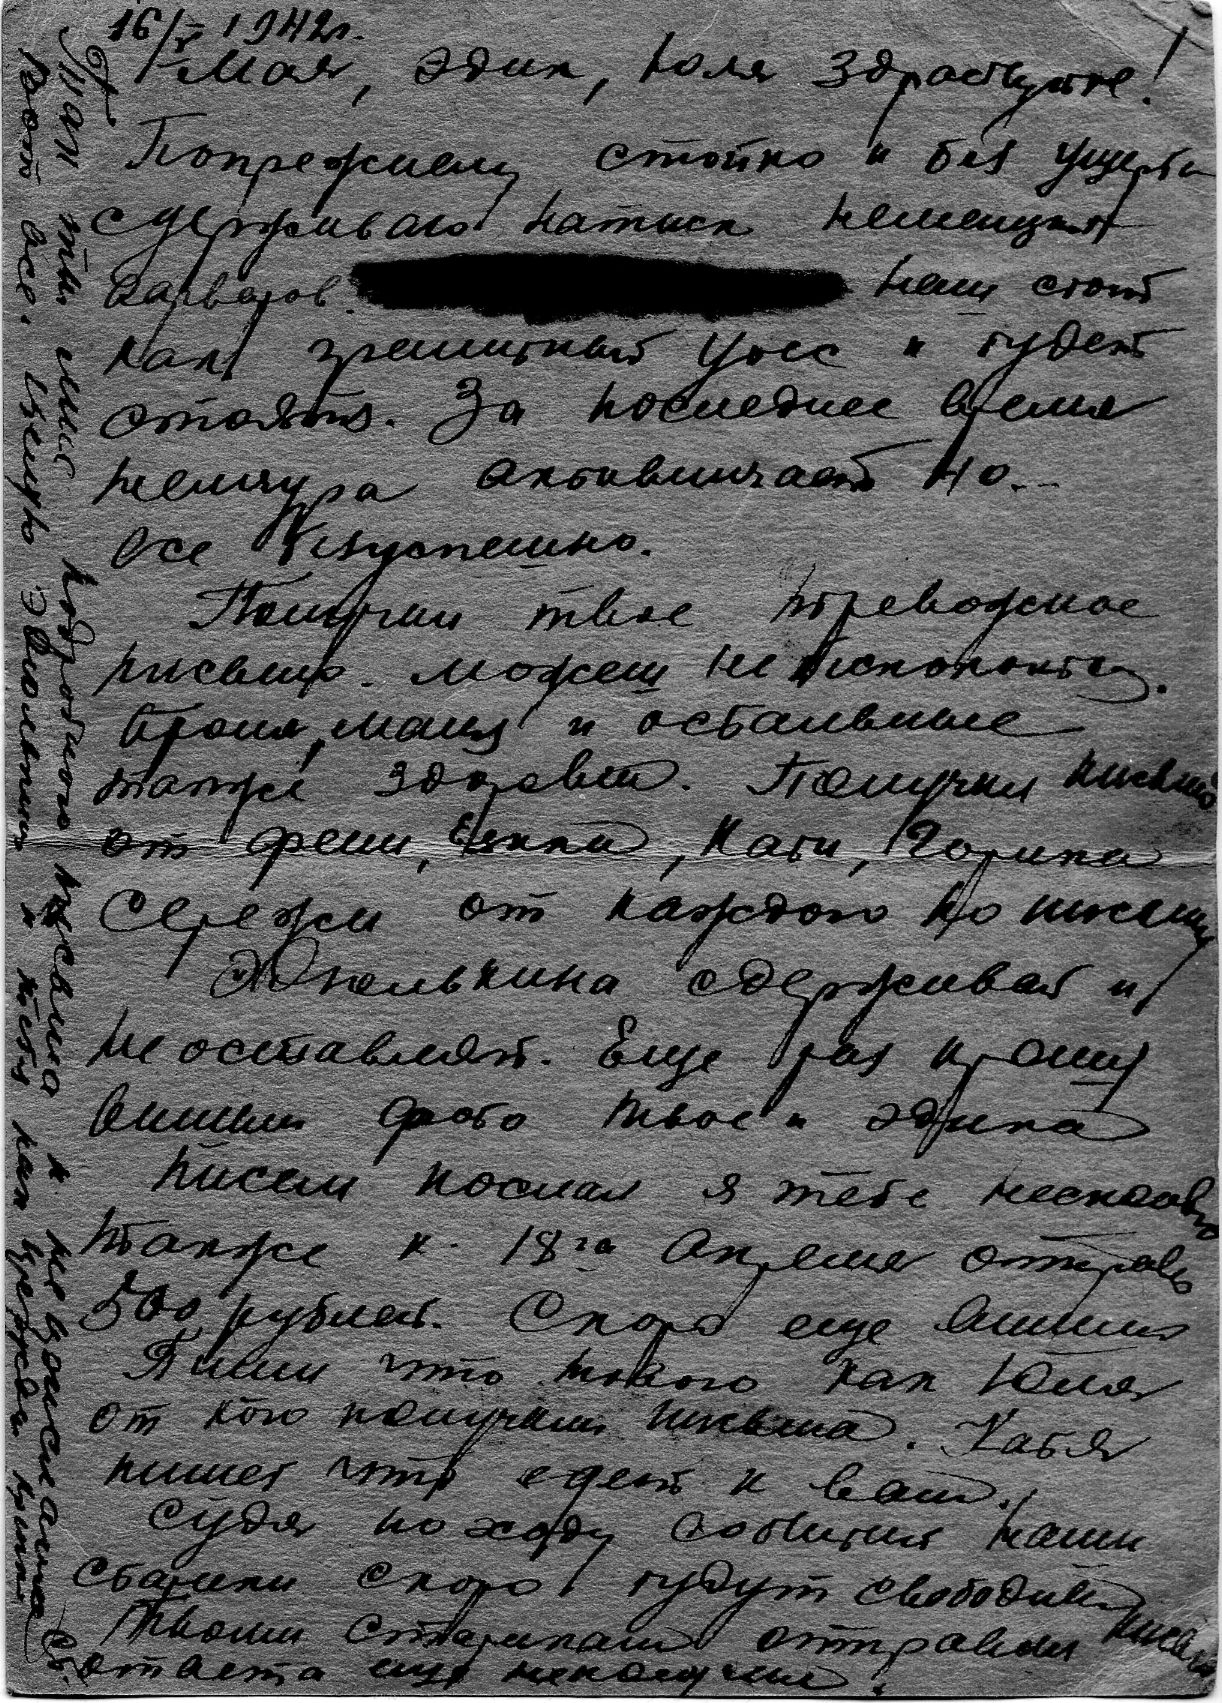 16/V 1942г.
Мая, Эдик, Юля Здраствуйте!
Попрежнему стойко и без ущерба
сдерживаю натиск немецких
варваров. наш стоит
как гранитный утес и будет
стоять. За последнее время
немчура активничает но...
все безуспешно.
Получил твое тревожное
письмо. можеш не беспокоится.
Броня, маня и остальные
также здоровы. Получил письмо
от фени, Кати,
Сережи от каждого по письму
Эмилькина сдерживай и
не оставляй. Еще раз прошу
вышли фото твое и эдика
Писем послал я тебе несколько
также к 18го Апреля отправ
500 рублей. Скоро еще вышлю
Пиши что нового как Юля
от кого получаеш письма. Катя
пишет что едет к вам.
Судя по ходу события наши
старики скоро будут свободны
Твоим старикам отправил письмо
ответа еще неполучил.
ты мне подробного письма и не написала
Вот все. Целую Эмилькина и тебя как прежде